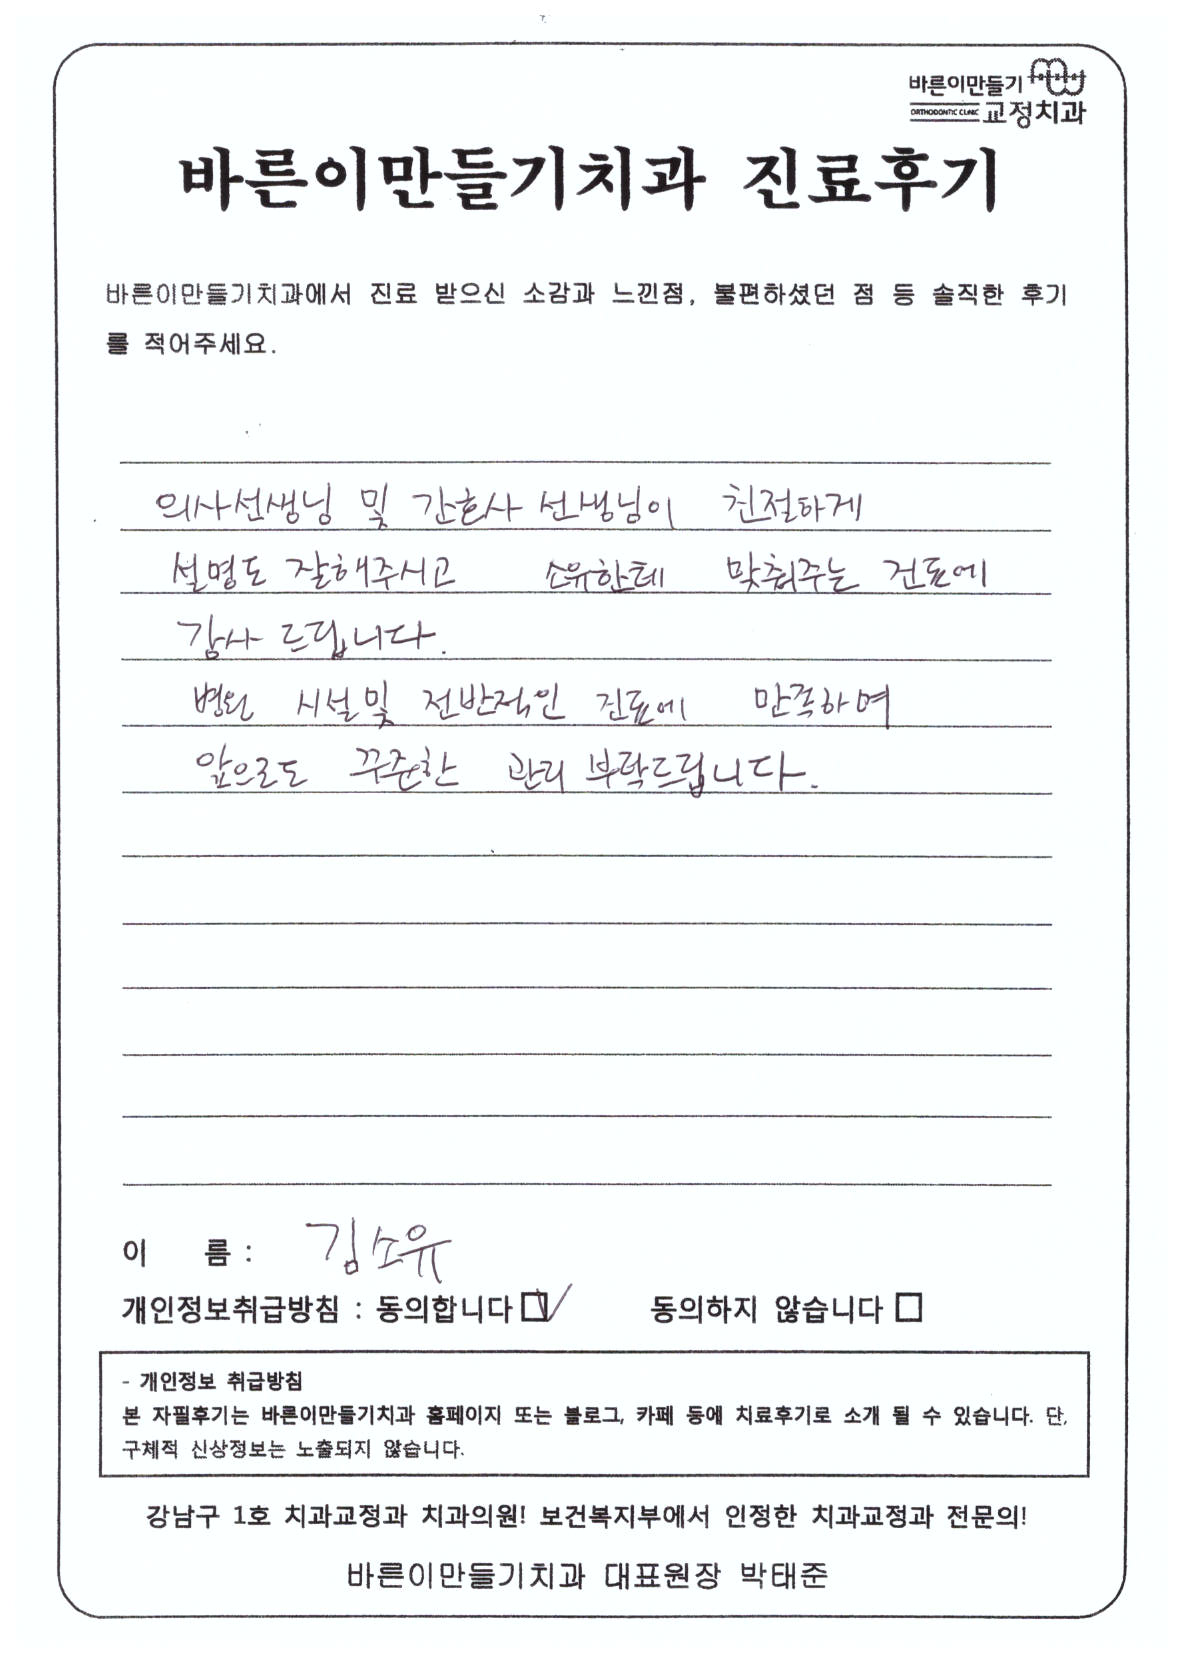 바른이만들기
ORTHODONTIC CLINIC 교정치과
바른이만들기치과 진료후기
바른이만들기치과에서 진료 받으신 소감과 느낀점, 불편하셨던 점 등 솔직한 후기
를 적어주세요.
의사선생님 및 간호사 선생님이 친절하게
설명도 잘해주시고 소유한테 맞춰주는 진료에
감사 드립니다.
병원 시설및 전반적인 진료에 만족하며
앞으로도 꾸준한 관리 부탁드립니다.
이 름 : 김소유
개인정보취급방침 : 동의합니다 ☑ 동의하지 않습니다 □
- 개인정보 취급방침
본 자필후기는 바른이만들기치과 홈페이지 또는 블로그, 카페 등에 치료후기로 소개 될 수 있습니다. 단,
구체적 신상정보는 노출되지 않습니다.
강남구 1호 치과교정과 치과의원! 보건복지부에서 인정한 치과교정과 전문의!
바른이만들기치과 대표원장 박태준